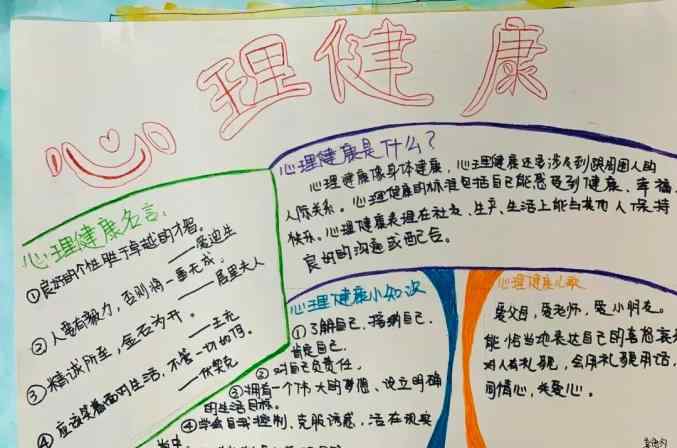 心理健康
心理健康是什么？
心理健康像身体健康，心理健康还是涉及到跟周围人的
人际关系。心理健康的标准包括自己能感受到健康、幸福
快乐。心理健康表现在社交、生产、生活上能与其他人保持
良好的沟通或配合。
心理健康名言:
①良好的个性胜于卓越的才智。
——爱迪生
②人要有毅力，否则将一事无成。
——居里夫人
③精诚所至，金石为开。
——王充
④应该笑着面对生活，不管一切如何。
——伏契克
心理健康小知识
①了解自己，接纳自己.
肯定自己.
②对自己负责任.
③拥有一个伟大的梦想、设立明确
的生活目标.
④学会自我控制，克服诱惑，活在现实
当中
心理健康儿歌
爱父母，爱老师，爱小朋友。
能恰当地表达自己的喜怒哀
对人有礼貌，会用礼貌用语，
同情心，关爱心。